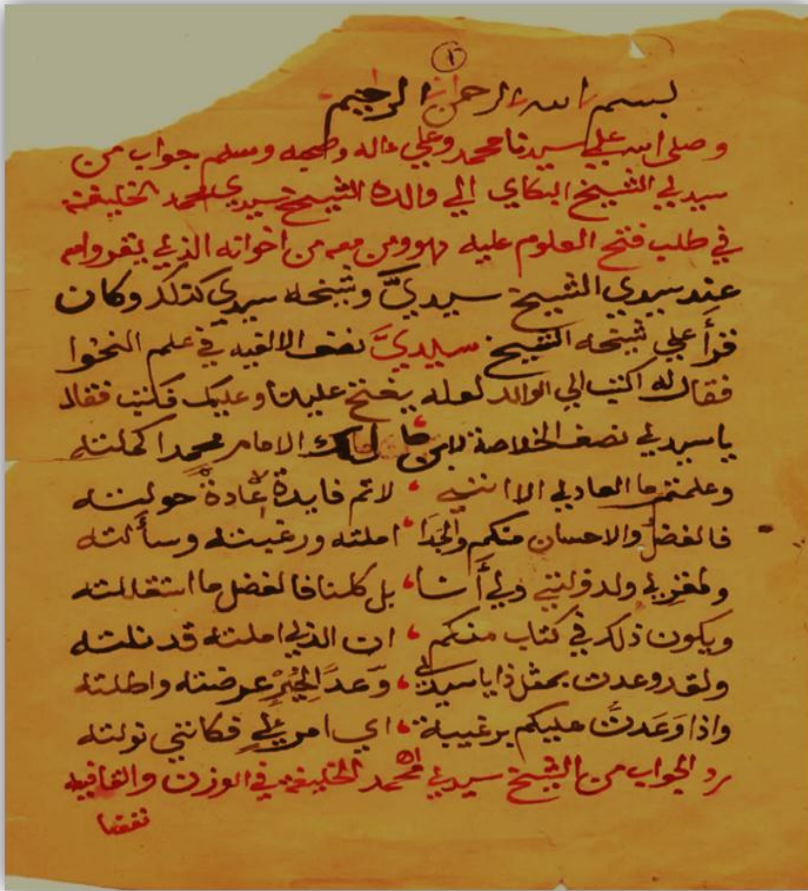 ١
بسم الله الرحمان الرحيم
وصلى الله علي سيدنا محمد وعلي ءاله وصحبه وسلم جواب من
سيدي الشيخ البكاي الي والده الشيخ سيدي محمد الخليفة
في طلب فتح العلوم عليه هو ومن معه من اخوانه الذي يقروا معه
عند سيدي الشيخ سيديَّ وشيخه سيدي كذلك وكان
قرأ علي شيخه الشيخ سيديَّ نصف الالفيه في علم النحوا
فقال له اكتب الي الوالد لعله يفتح علينا وعليك فكتب فقال
يا سيدي نصف الخلاصة لابن مالك الامام محمدا كملته
وعلمت ما العادي الا انني ، لا تم فايدة عادة حولته
فالفضل والاحسان منكم والجدا ، املته ورغبته وسألته
بل كلنا فالفضل ما استقللته
ويكون ذلك في كتاب منكم ، ان الذي املته قد نلته
ولقد وعدت بمثل ذا يا سيدي ، وعد الخير عرضته واطلته
واذا وَعَدتَّ عليكم برغيبة ، اي امر علي فكانني نولته
رد الجواب من الشيخ سيدي محمد الخليفة في الوزن والقافيه